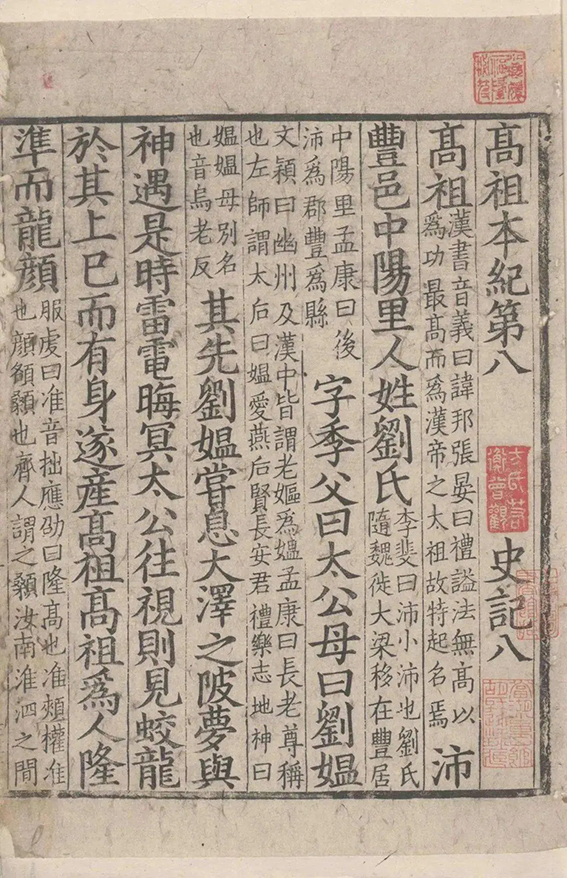 髙祖本紀第八 史記八
髙祖漢書音義曰諱邦張晏曰禮諡法無髙以爲功最髙而爲漢帝之太祖故特起名焉沛
豐邑中陽里人姓劉氏李斐曰沛小沛也劉氏隨魏徙大梁移在豐居
中陽里孟康曰後沛爲郡豐爲縣字季父曰太公母曰劉媼
文穎曰幽州及漢中皆謂老嫗爲媼孟康曰長老尊稱也左師謂太后曰媼愛燕后賢長安君禮樂志地神曰
媼媼母別名也音烏老反其先劉媼嘗息大澤之陂夢與
神遇是時雷電晦冥太公往視則見蛟龍
於其上巳而有身遂産髙祖髙祖爲人隆
準而龍顔服虔曰准音拙應劭曰隆髙也准頰權准也顔頟顙也齊人謂之顙汝南淮泗之間
方氏若衡曾觀